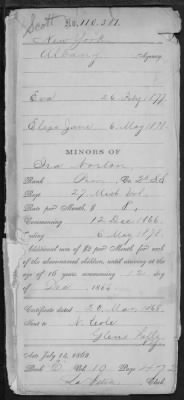 Scott No. 110,281.
New York
Albany Agency.
Eva 26 Feby 1877
Eliza Jane 6 May 1878
MINORS OF
Ira
Rank Co. 2d
Regt 27 Mich Vol.
Rate per Month, $ 8
Commencing 12 Dec 1866.
Ending 6 May 1878.
Additional sum of $2 per Month for each
of the above-named children, until arriving at the
age of 16 years commencing 12 day
of Dec 1866
Certificate dated 20 1868
Sent to N. Cole
Glens Falls
Act July 14, 1862
Book D Vol. 10 Page 472
Clerk.